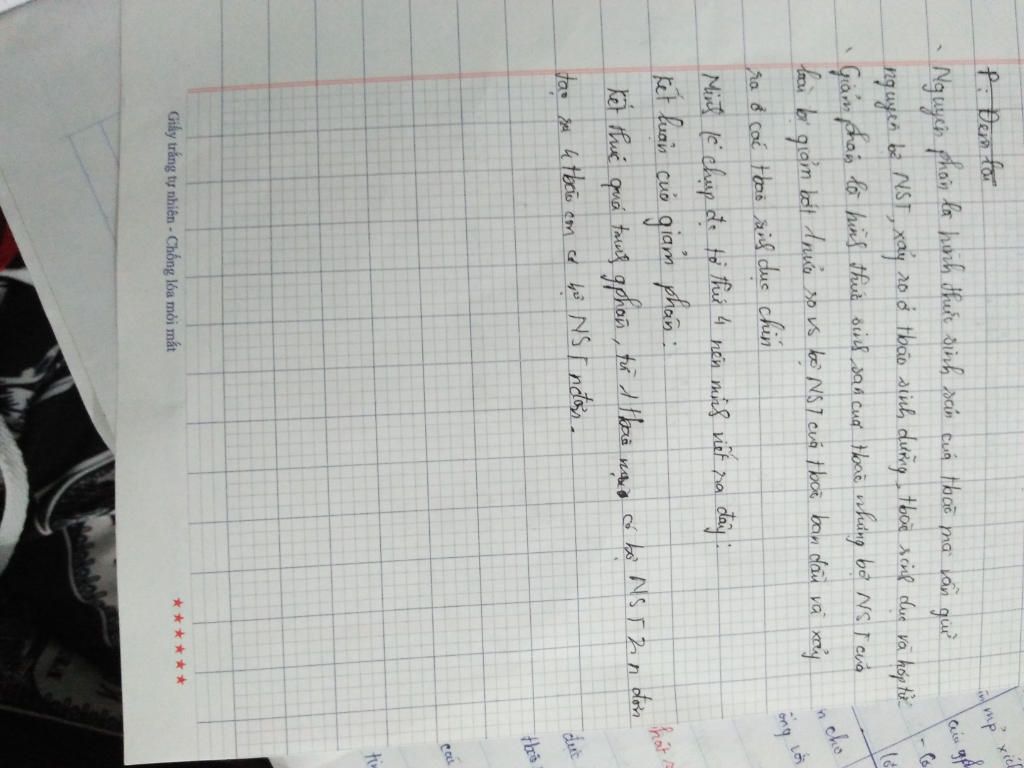 P: Đem lai
- Nguyên phân là hình thức sinh sản của tbào mà vẫn giữ
nguyên bộ NST, xảy ra ở tbào sinh dưỡng, tbào sinh dục và hợp tử
- Giảm phân là hình thức sinh sản của tbào nhưng bộ NST của
loài bị giảm bớt 1 nửa so vs bộ NST của tbào ban đầu và xảy
ra ở các tbào sinh dục chín
Mình k chụp đc tờ thứ 4 nên mình viết ra đây:
Kết luận của giảm phân:
Kết thúc quá trình gphân, từ 1 tbào mẹ có bộ NST 2n đơn
tạo ra 4 tbào con có bộ NST n đơn.
Giấy trắng tự nhiên - Chống lóa mỏi mắt
hồi
đc
tbào
cái
n cho
ống với
mp, xích
của gp
- Co